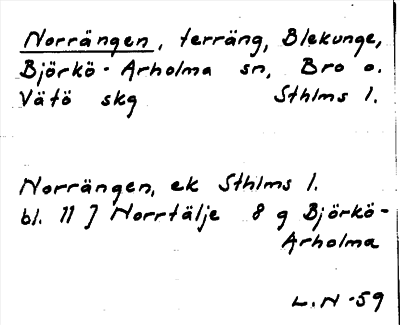 Norrängen, terräng, Blekunge,
Björkö-Arholma sn, Bro o.
Vätö skg Sthlms l.
Norrängen, ek Sthlms l.
bl. 11 J Norrtälje 8 g Björkö-
Arholma
L.N -59